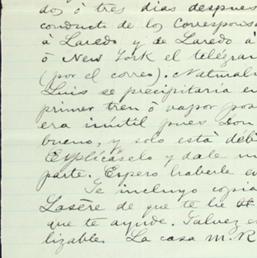 do, ó tres días despues
conducto de los Corresponsa
à Laredo y de Laredo à
ó New York el telégra
(por el correo). Natural
Luis se precipitaria en
primer tren ó vapor
era inútil pues Don
bueno, y solo está debi
Explícaselo y dale
parte. Espero haberle
Te incluyo copia
Lasère de que te
que te ayude. Talvez
lizable. La casa M. R